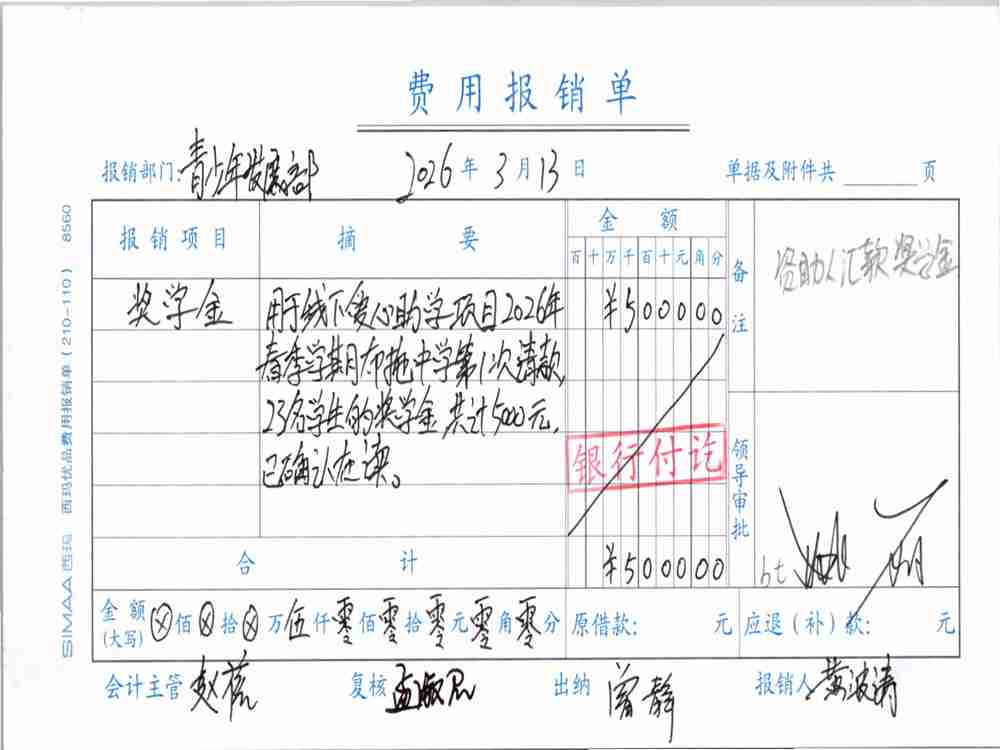 费用报销单
报销部门:青少年发展部 2026年3月13日 单据及附件共 页
报销项目 摘要 金额 备注
百十万千百十元角分
奖学金 用于线下爱心助学项目2026年 ¥500000 资助人汇款奖学金
春季学期布拖中学第1次请款,
23名学生的奖学金,共计5000元,
已确认在读。
银行付讫
领导审批
合计 ¥500000
金额(大写) ⊗佰⊗拾⊗万伍仟零佰零拾零元零角零分 原借款: 元 应退(补)款: 元
会计主管 赵 复核 孟 出纳 曾静 报销人 黄波涛
SIMAA西玛 西玛优品费用报销单(210-110) 8560